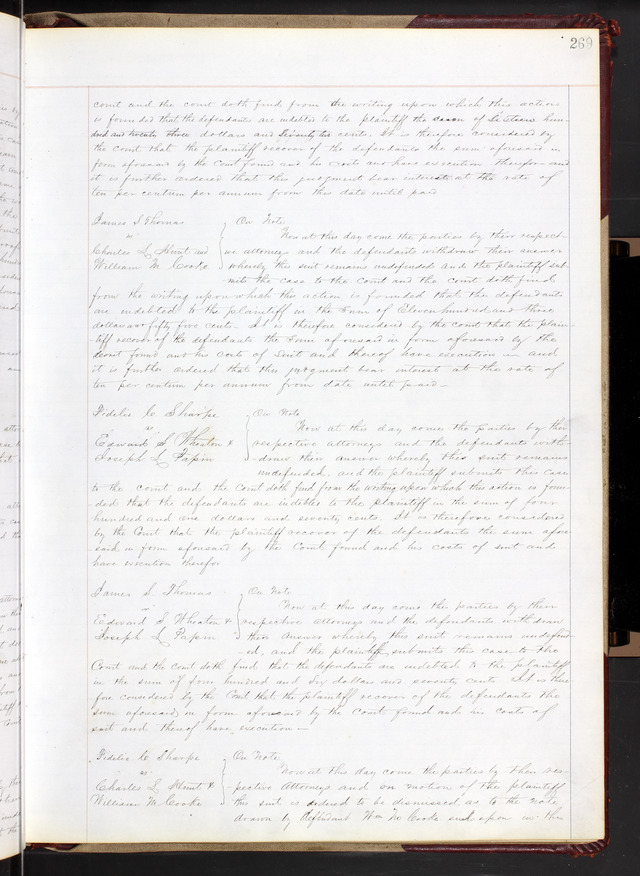 269
court and the court doth find from the writing upon which this action
is founded that the defendants are indebted to the plaintiff the sum of Sixteen hun-
dred and twenty three dollars and Seventy two cents. It is therefore considered by
the Court that the plaintiff recover of the defendants the sum aforesaid in
form aforesaid by the Court found and his costs and have execution therefor and
it is further ordered that this judgment bear interest at the rate of
ten per centum per annum from this date until paid
James S Thomas
vs
Charles L Hunt and
William M Cooke
On Note
Now at this day come the parties by their respect-
ive attorneys and the defendants withdraw their answer
whereby this suit remains undefended and the plaintiff sub-
mits the case to the Court and the Court doth find
from the writing upon which this action is founded that the defendants
are indebted to the plaintiff in the sum of Eleven hundred and three
dollars and fifty five cents. It is therefore considered by the court that the plain-
tiff recover of the defendants the sum aforesaid in form aforesaid by the
Court found and his costs of Suit and thereof have execution — and
it is further ordered that this judgment bear interest at the rate of
ten per centum per annum from date until paid —
Fidelio C Sharpe
vs
Edward S Wheaton &
Joseph L Papin
On Note
Now at this day come the parties by their
respective attorneys and the defendants with-
draw their answer whereby this suit remains
undefended, and the plaintiff submits this case
to the court and the Court doth find from the writing upon which this action is foun-
ded that the defendants are indebted to the plaintiff in the sum of four
hundred and one dollars and seventy cents. It is therefore considered
by the Court that the plaintiff recover of the defendants the sum afore
said in form aforesaid by the Court found and his costs of suit and
have execution therefor
James S. Thomas
vs
Edward S Wheaton &
Joseph L Papin
On Note
Now at this day come the parties by their
respective attorneys and the defendants withdraw
their answer whereby this suit remains undefend-
ed, and the plaintiff submits this case to the
Court and the Court doth find that the defendants are indebted to the plaintiff
in the sum of four hundred and six dollars and seventy cents It is there
fore considered by the Court that the plaintiff recover of the defendants the
sum aforesaid in form aforesaid by the Court found and his costs of
suit and thereof have execution —
Fidelio C Sharpe
vs
Charles L Hunt &
William M Cooke
On Note
Now at this day come the parties by their res-
pective Attorneys and on motion of the plaintiff
this suit is ordered to be dismissed as to the note
drawn by defendant Wm M Cooke sued upon in this